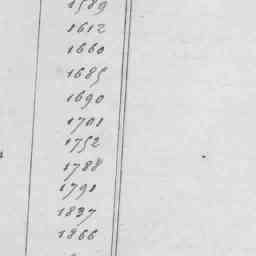 1589
1612
1660
1685
1690
1701
1752
1788
1791
1837
1866